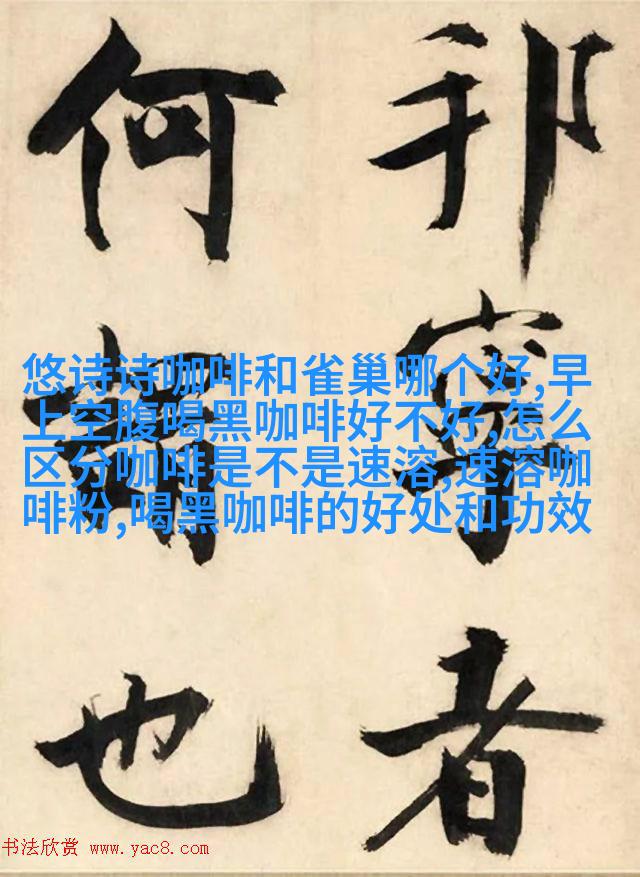 邦寧者
何謂也
悠诗诗咖啡和雀巢哪个好,早
上空腹喝黑咖啡好不好,怎么
区分咖啡是不是速溶,速溶咖
啡粉,喝黑咖啡的好处和功效
书法欣赏 www.yac8.com